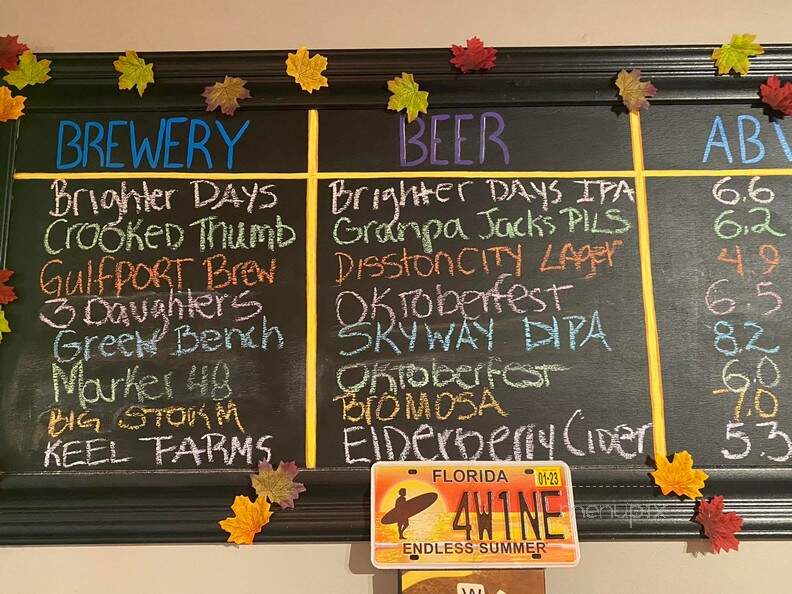 BREWERY BEER ABV
Brighter DAYS Brighter DAYS IPA 6.6
Crooked Thumb Granpa Jacks PILS 6.2
Gulfport Brew DisstonCITY LAGer 4.9
3 Daughters OKToberfest 6.5
Green Bench SKYWAY DIPA 8.2
Marker 48 OKToberfest 6.0
BIG STORM BROMOSA 7.0
KEEL FARMS ElDerberry CiDer 5.3
FLORIDA 01-23
4W1NE
ENDLESS SUMMER
menupix
W